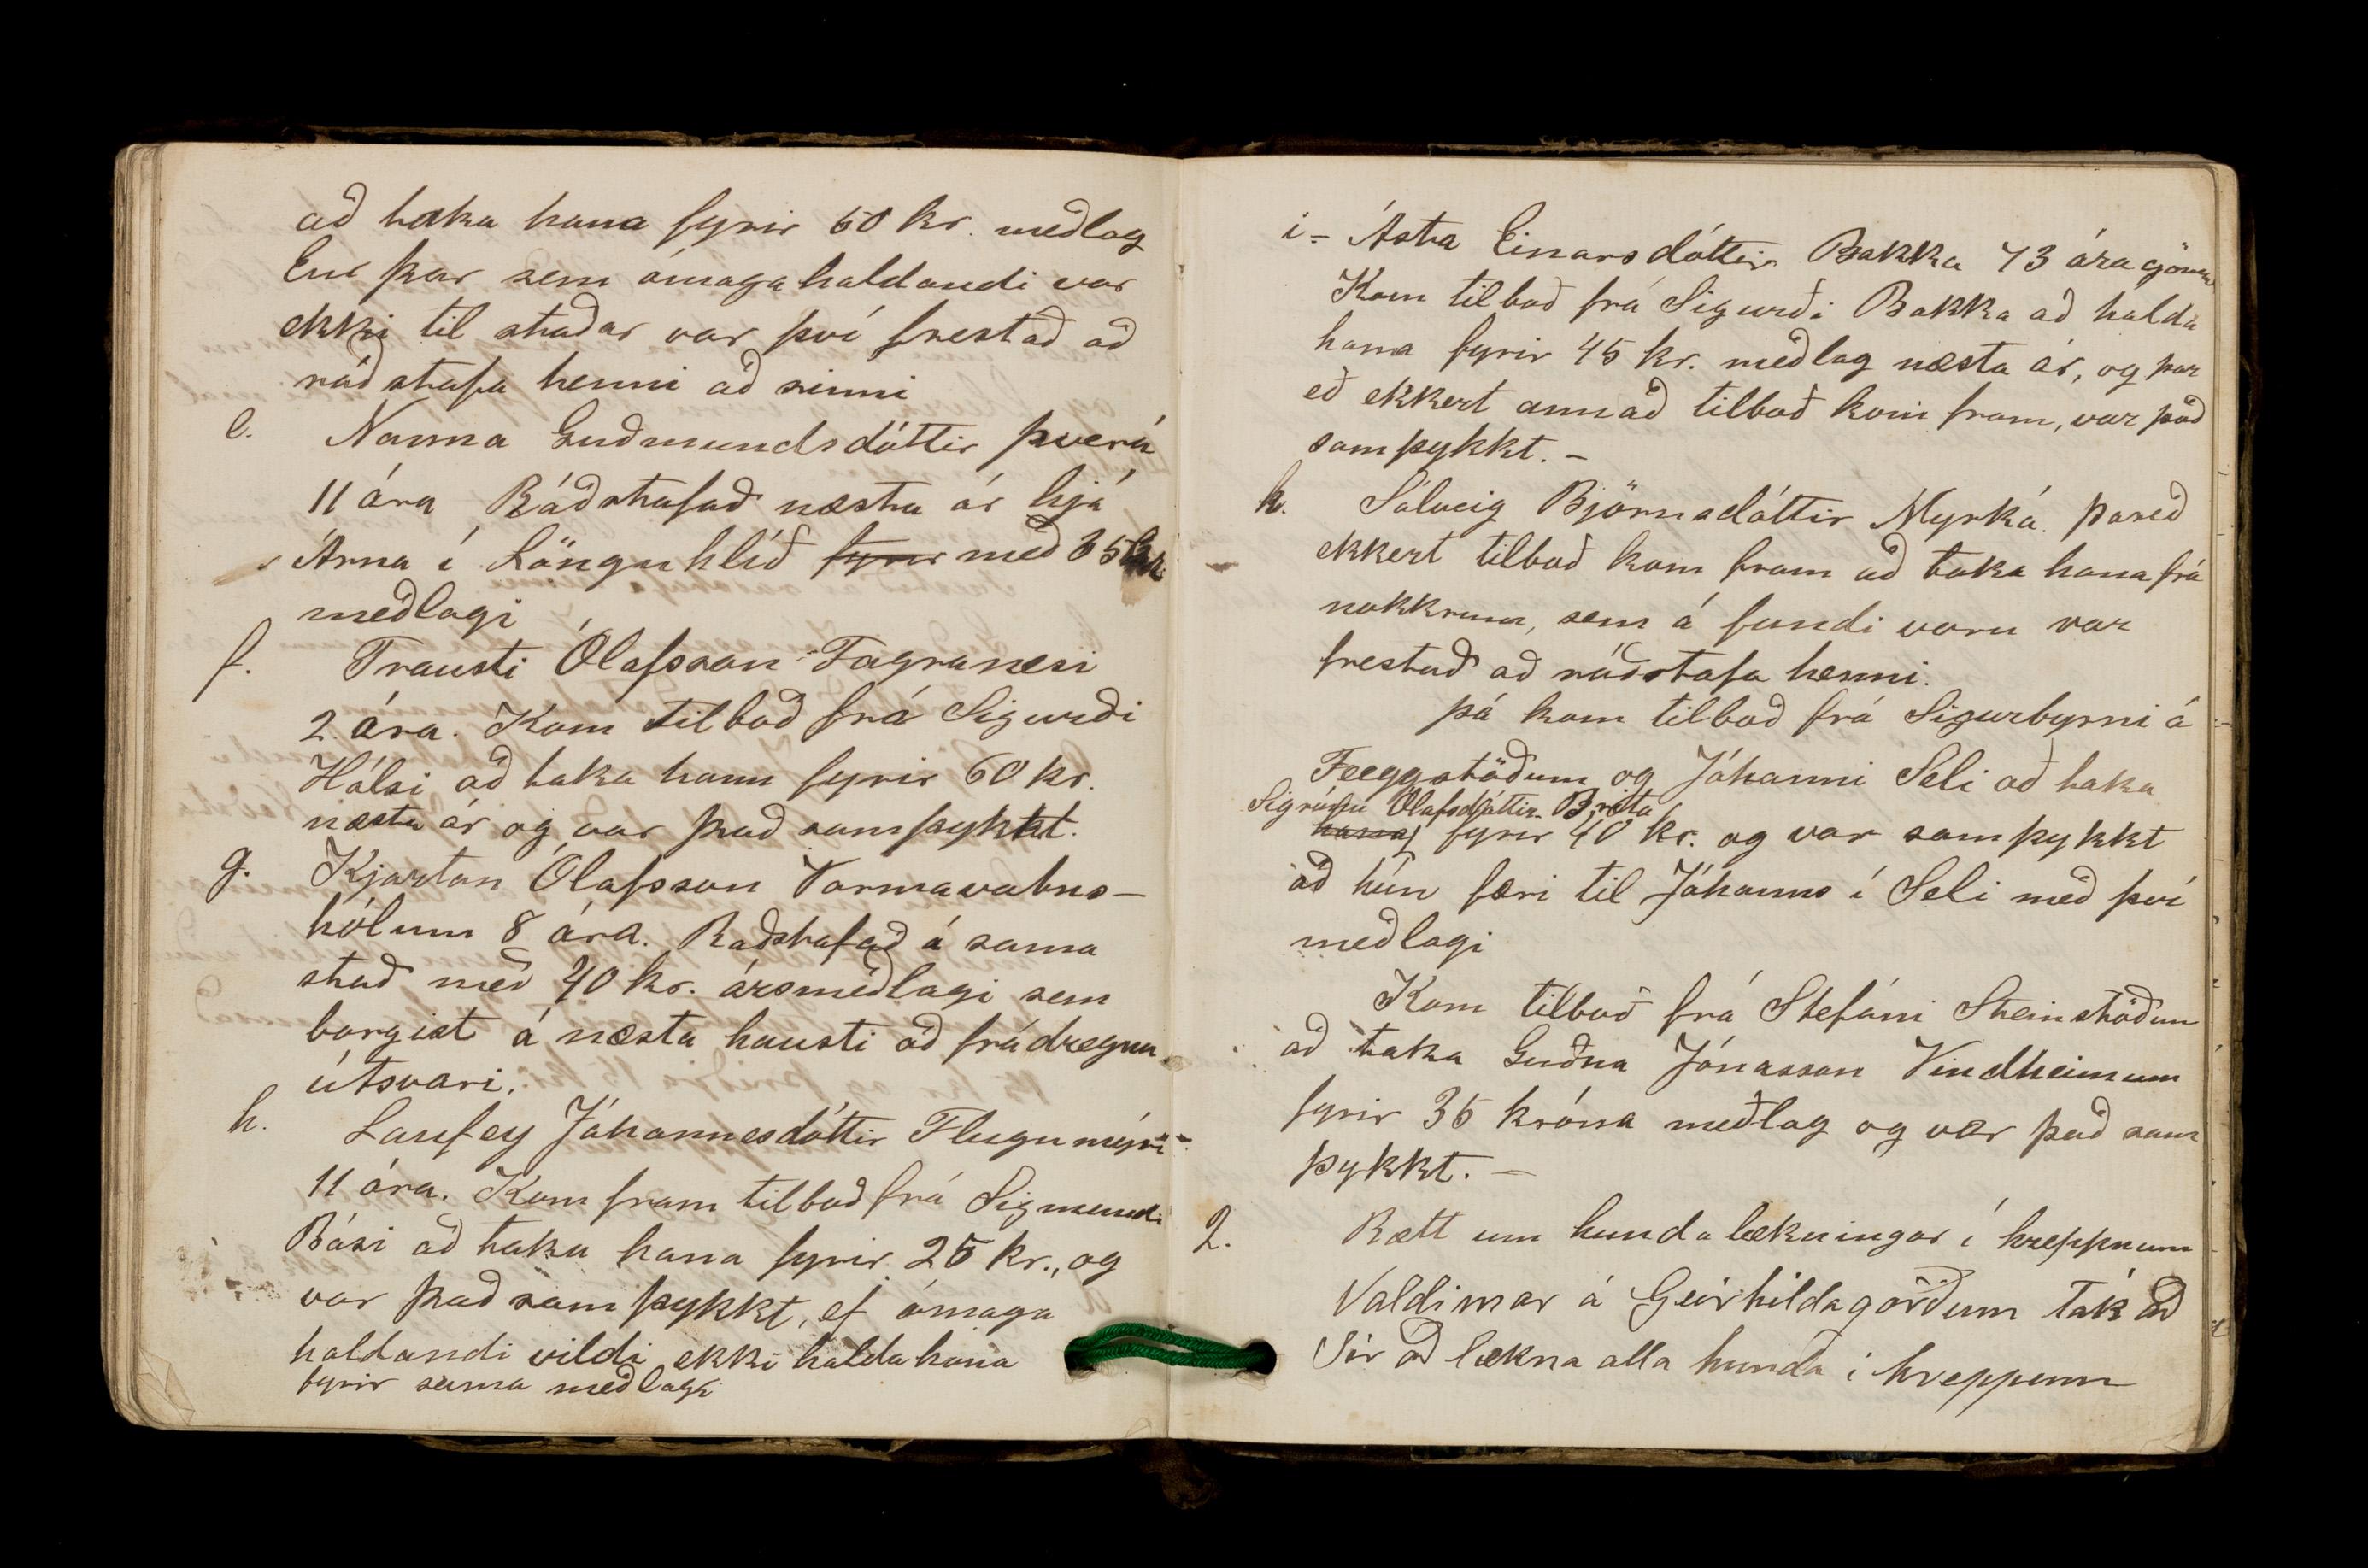 að taka hana fyrir 60 kr. meðlag
En þar sem ómagahaldandi var
ekki til staðar var því frestað að
ráðstafa henni að sinni
e. Nanna Guðmundsdóttir Þverá
11 ára Ráðstafað næsta ár hjá
Árna í Lönguhlíð fyrir með 35 kr.
meðlagi
f. Trausti Ólafsson Fagranesi
2 ára. Kom tilboð frá Sigurði
Hálsi að taka hann fyrir 60 kr.
næsta ár og var það samþykkt.
g. Kjartan Ólafsson Varmavatns-
hólum 8 ára. Raðstafað á sama
stað með 40 kr. ársmeðlagi sem
borgist á næsta hausti að frádregnu
útsvari.
h. Laufey Jóhannesdóttir Flugumýri
11 ára. Kom fram tilboð frá Sigmundi
Bási að taka hana fyrir 25 kr., og
var það samþykkt, ef ómaga
haldandi vildi ekki halda hana
fyrir sama meðlagi
i- Ásta Einarsdóttir Bakka 73 ára gömul
Kom tilboð frá Sigurði Bakka að halda
hana fyrir 45 kr. meðlag næsta ár, og þar
eð ekkert annað tilboð kom fram, var það
samþykkt. -
k. Sólveig Björnsdóttir Myrká. Þareð
ekkert tilboð kom fram að taka hana frá
nokkrum, sem á fundi voru var
frestað að ráðstafa henni.
Þá kom tilboð frá Sigurbyrni á
Feeggstöðum og Jóhanni Seli að taka
Sigrúnu Ólafsdóttir
hana fyrir 40 kr. og var samþykkt
að hún færi til Jóhanns í Seli með því
meðlagi
Kom tilboð frá Stefáni Steinstöðum
að taka Guðna Jónasson Vindheimum
fyrir 35 króna meðlag og var það sam
þykkt. -
2. Rætt um hundalækningar í hreppnum
Valdimar á Geirhildagörðum tók að
sér að lækna alla hunda í hreppnum